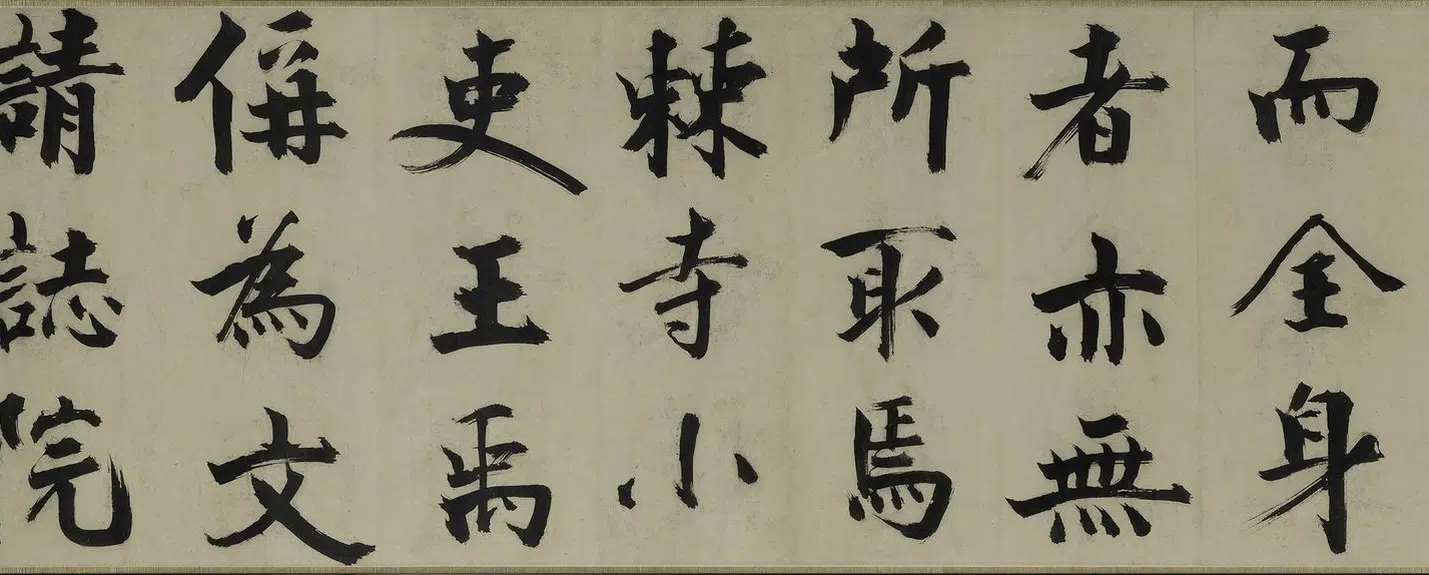 而全身
者亦無
所取焉
棘寺小
吏王禹
偁為文
請誌院